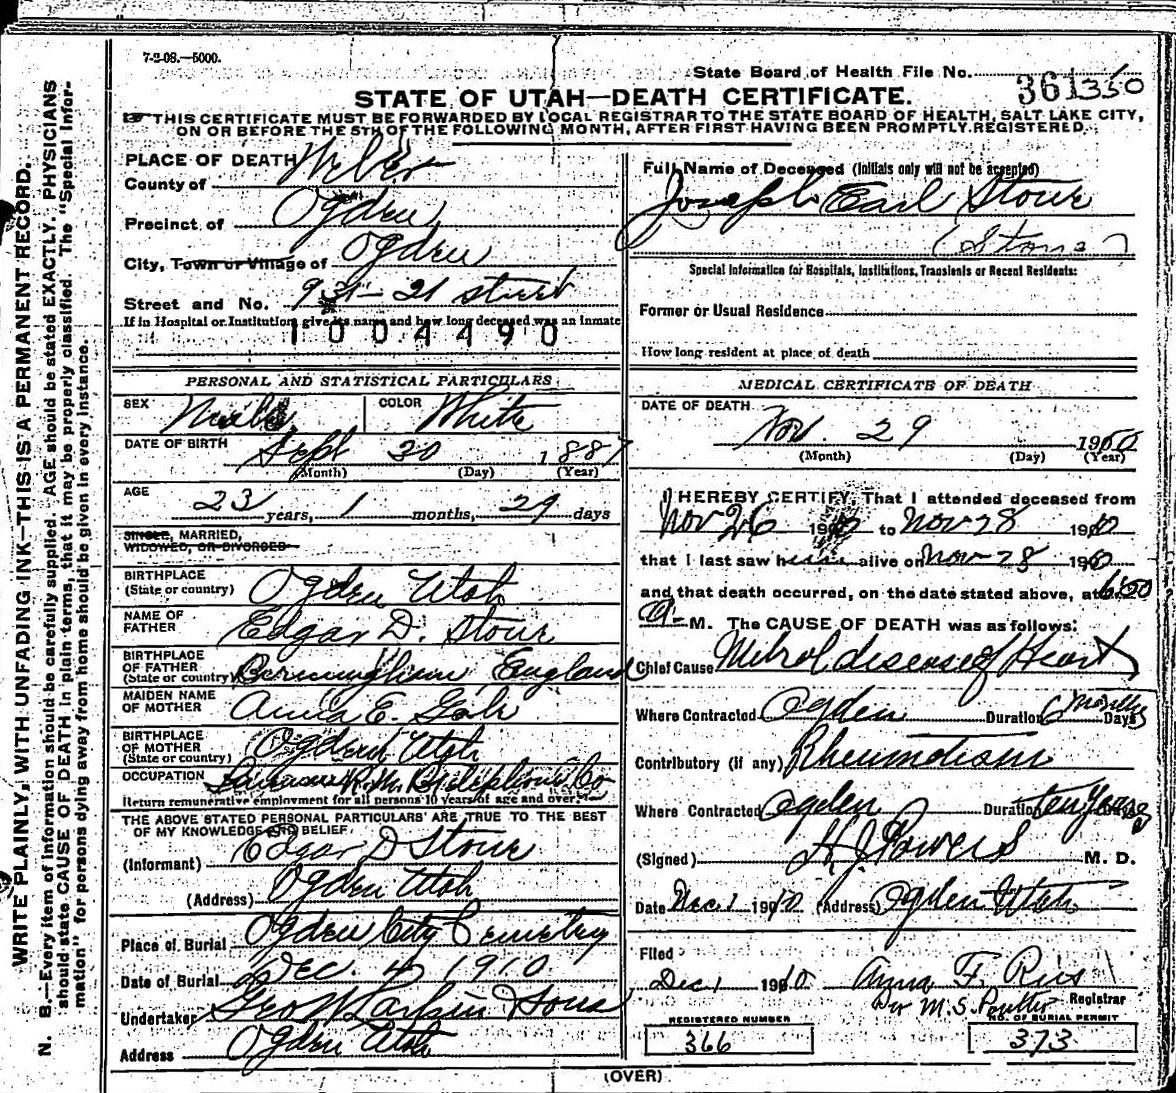 7-2-08.—5000.
State Board of Health File No. 361 350
STATE OF UTAH—DEATH CERTIFICATE.
THIS CERTIFICATE MUST BE FORWARDED BY LOCAL REGISTRAR TO THE STATE BOARD OF HEALTH, SALT LAKE CITY,
ON OR BEFORE THE 5TH OF THE FOLLOWING MONTH, AFTER FIRST HAVING BEEN PROMPTLY REGISTERED.
WRITE PLAINLY, WITH UNFADING INK—THIS IS A PERMANENT RECORD.
N. B.—Every item of information should be carefully supplied. AGE should be stated EXACTLY. PHYSICIANS
should state CAUSE OF DEATH in plain terms, that it may be properly classified. The "Special Infor-
mation" for persons dying away from home should be given in every instance.
PLACE OF DEATH
County of Weber
Precinct of Ogden
City, Town or Village of Ogden
Street and No. 931- 21 street
If in Hospital or Institution, give its name and how long deceased was an inmate
1004490
PERSONAL AND STATISTICAL PARTICULARS
SEX Male COLOR White
DATE OF BIRTH Sept 30 1887
(Month) (Day) (Year)
AGE
23 years, 1 months, 29 days
SINGLE, MARRIED,
WIDOWED, OR DIVORCED
BIRTHPLACE
(State or country) Ogden Utah
NAME OF
FATHER Edgar D. Stone
BIRTHPLACE
OF FATHER
(State or country) Birmingham, England
MAIDEN NAME
OF MOTHER Anna E.
BIRTHPLACE
OF MOTHER
(State or country) Ogden Utah
OCCUPATION R.M. Bell Telephone Co
Return remunerative employment for all persons 10 years of age and over
THE ABOVE STATED PERSONAL PARTICULARS ARE TRUE TO THE BEST
OF MY KNOWLEDGE AND BELIEF.
(Informant) Edgar D Stone
(Address) Ogden Utah
Place of Burial Ogden City Cemetery
Date of Burial Dec. 4 1910
Undertaker Geo W Larkin & Sons
Address Ogden Utah
Full Name of Deceased (Initials only will not be accepted)
Joseph Earl Stone
(Stone)
Special Information for Hospitals, Institutions, Transients or Recent Residents:
Former or Usual Residence
How long resident at place of death
MEDICAL CERTIFICATE OF DEATH
DATE OF DEATH
Nov. 29 1910
(Month) (Day) (Year)
I HEREBY CERTIFY, That I attended deceased from
Nov 26 1910 to Nov 28 1910
that I last saw him alive on Nov 28 1910
and that death occurred, on the date stated above, at 6:50
A- M. The CAUSE OF DEATH was as follows:
Chief Cause Mitral disease of Heart
Where Contracted Ogden Duration 6 months Days
Contributory (if any) Rheumatism
Where Contracted Ogden Duration ten years
(Signed) H J Powers M. D.
Date Dec 1 1910 (Address) Ogden Utah
Filed
Dec 1 1910 Anna F. Ries
Registrar
REGISTERED NUMBER
366
NO. OF BURIAL PERMIT
373
(OVER)